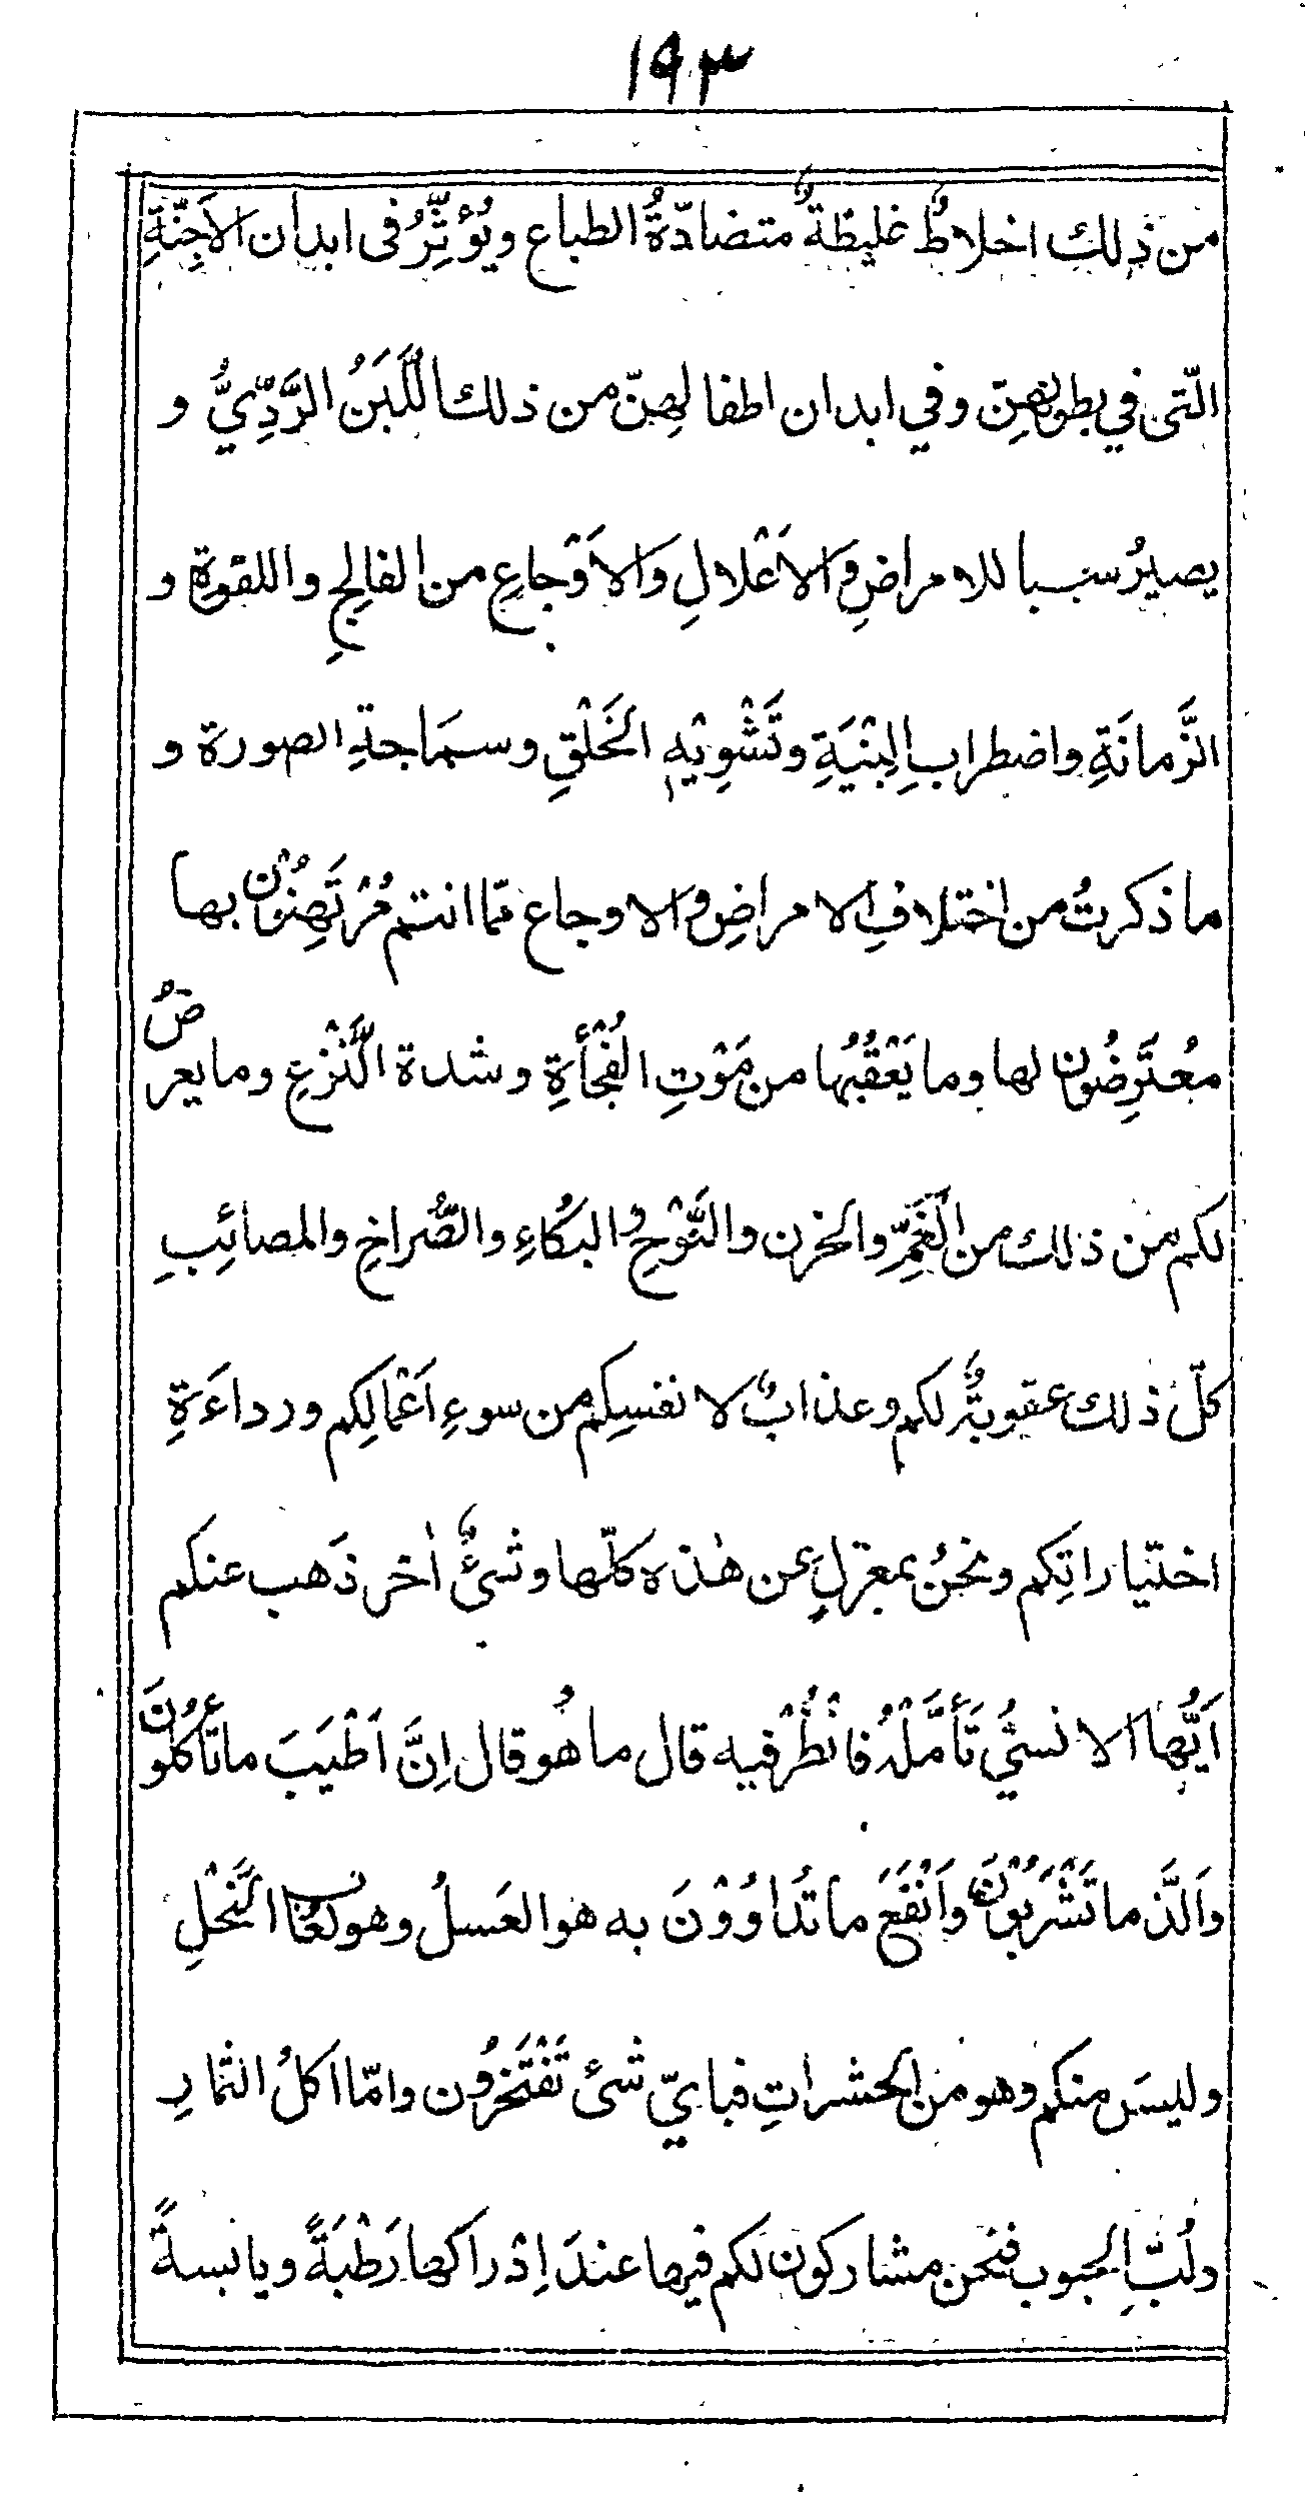 ١٩٣
من ذلك اخلاطٌ غليظةٌ متضادّةُ الطباع ويُؤَثِّرُ فى ابدان الاَجِنّةِ
الّتى في بطونهِنّ وفي ابدان اطفالهِنّ من ذلك اللَّبَنُ الرَّدِّيُّ و
يصيرُ سببا للامراضِ والاَعْلالِ وَالاَوْجاعِ من الفالِجِ واللقوةِ و
الزَّمانَةِ واضطرابِ البِنْيَةِ وتَشْوِيْهِ الخَلْقِ وسمَاجةِ الصورة و
ما ذكرتُ من اختلافِ الامراضِ والاوجاع ممّا انتم مُرْتَهِنُوْن بها
معُتَرِضُون لها وما يَعْقُبُها من مَوْتِ الفُجْأَةِ وشدة النَّزْعِ وما يعرضُ
لكم من ذلك من الغَمِّ والحزن والنَّوْحِ والبُكاءِ والصُّراخِ والمصائِبِ
كلّ ذلك عقوبةٌ لكم وعذابٌ لانفسِكم من سوءِ اَعْمالِكم ورداءَةِ
اختياراتِكم ونحنُ بمعزلٍ عن هٰذه كلّها وشئٌ اٰخر ذَهب عنكم
اَيُّها الانسيُّ تَأَمَّلْهُ فانْظُرْ فيه قال ما هُو قال اِنَّ اَطْيَبَ ما تأكُلُونَ
واَلَذَّ ما تَشْرَبُوْنَ وَاَنْفَعَ ما تُدَاوُوْنَ به هو العَسلُ وهو لعُابُ النَّحْلِ
وليسَ منكم وهو من الحشراتِ فبايّ شئ تَفْتَخِرُون وامّا اكلُ الثمارِ
ولُبِّ الحبوب فنحن مشاركون لكم فيها عندَ اِدْراكها رَطْبَةً ويابسةً